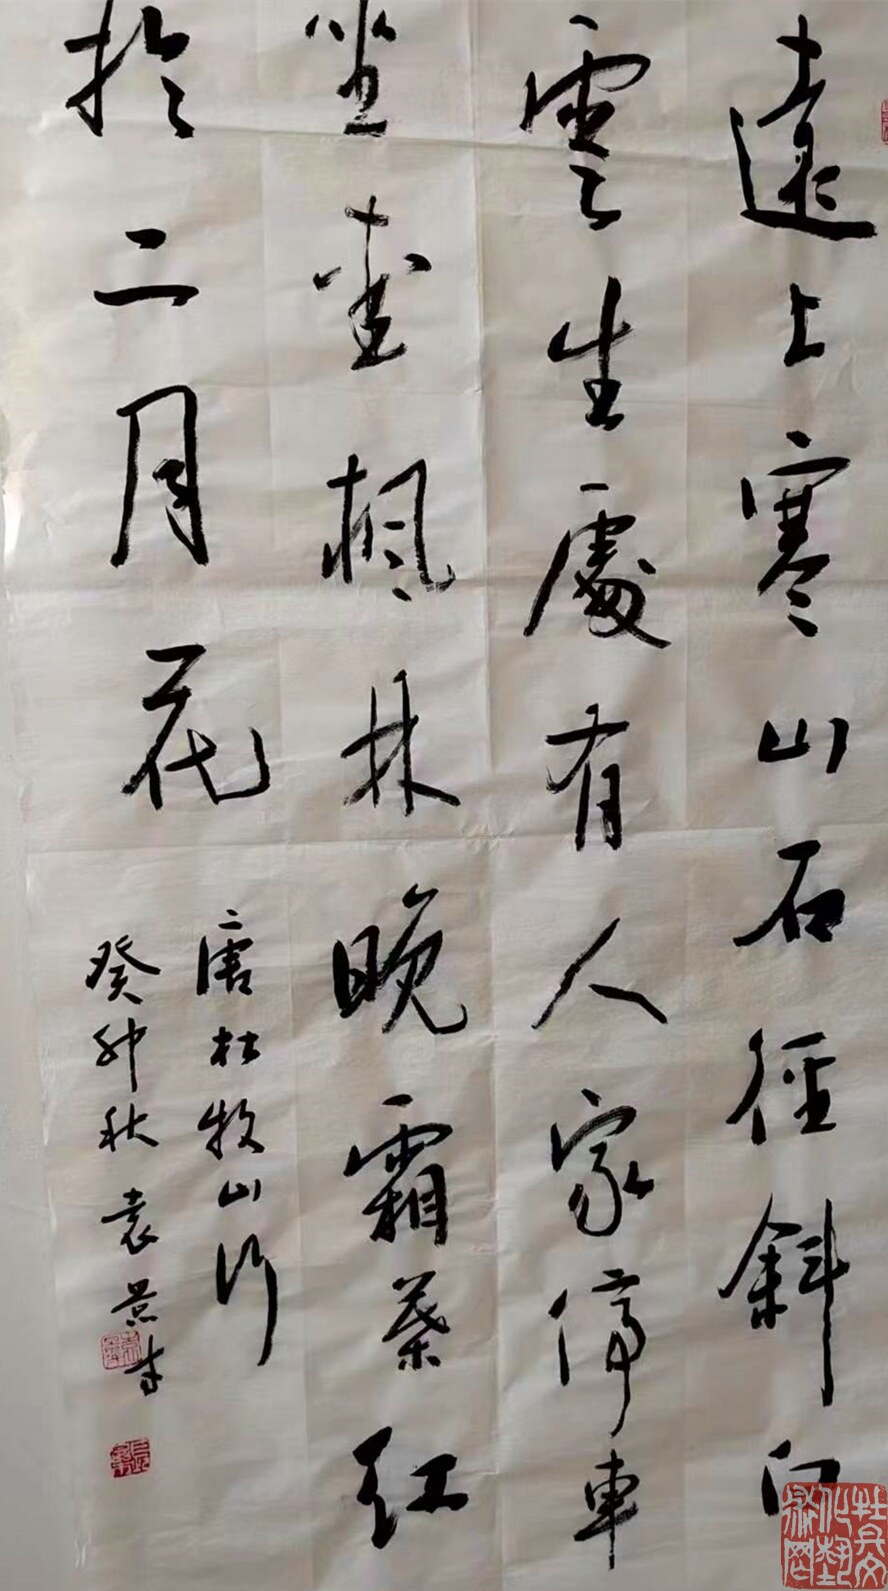 遠上寒山石徑斜白
雲生處有人家停車
坐愛楓林晚霜葉紅
於二月花
唐杜牧山行
癸卯秋袁景
牡丹文
化藝
術网